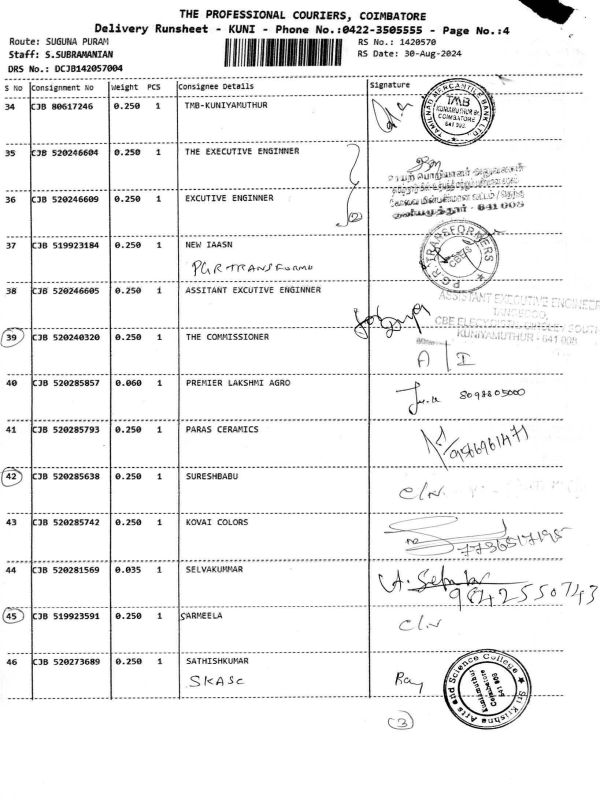 THE PROFESSIONAL COURIERS, COIMBATORE
Delivery Runsheet - KUNI - Phone No.:0422-3505555 - Page No.:4
Route: SUGUNA PURAM RS No.: 1420570
Staff: S.SUBRAMANIAN RS Date: 30-Aug-2024
DRS No.: DCJB142057004
S No Consignment No Weight PCS Consignee Details Signature
34 CJB 80617246 0.250 1 TMB-KUNIYAMUTHUR
TAMILNAD MERCANTILE BANK LTD
TMB
KUNIAMUTHUR Br
COIMBATORE
641 008
35 CJB 520246604 0.250 1 THE EXECUTIVE ENGINNER
36 CJB 520246609 0.250 1 EXCUTIVE ENGINNER
(2)
குனியமுத்தூர் - 641 008
37 CJB 519923184 0.250 1 NEW IAASN
PGR TRANSFORMU
P.G.R. TRANSFORMERS
CBE/8
38 CJB 520246605 0.250 1 ASSITANT EXCUTIVE ENGINNER
ASSISTANT EXECUTIVE ENGINEER
TANGEDCO,
KUNIYAMUTHUR - 641 008
39 CJB 520240320 0.250 1 THE COMMISSIONER
A I
40 CJB 520285857 0.060 1 PREMIER LAKSHMI AGRO
8098805000
41 CJB 520285793 0.250 1 PARAS CERAMICS
9566961471
42 CJB 520285638 0.250 1 SURESHBABU
C/N
43 CJB 520285742 0.250 1 KOVAI COLORS
7736517195
44 CJB 520281569 0.035 1 SELVAKUMMAR
9842550743
45 CJB 519923591 0.250 1 SARMEELA
C/N
46 CJB 520273689 0.250 1 SATHISHKUMAR
SKASC
Ray
Sri Krishna Arts and Science College
Kuniamuthur
Coimbatore
641 008
(3)